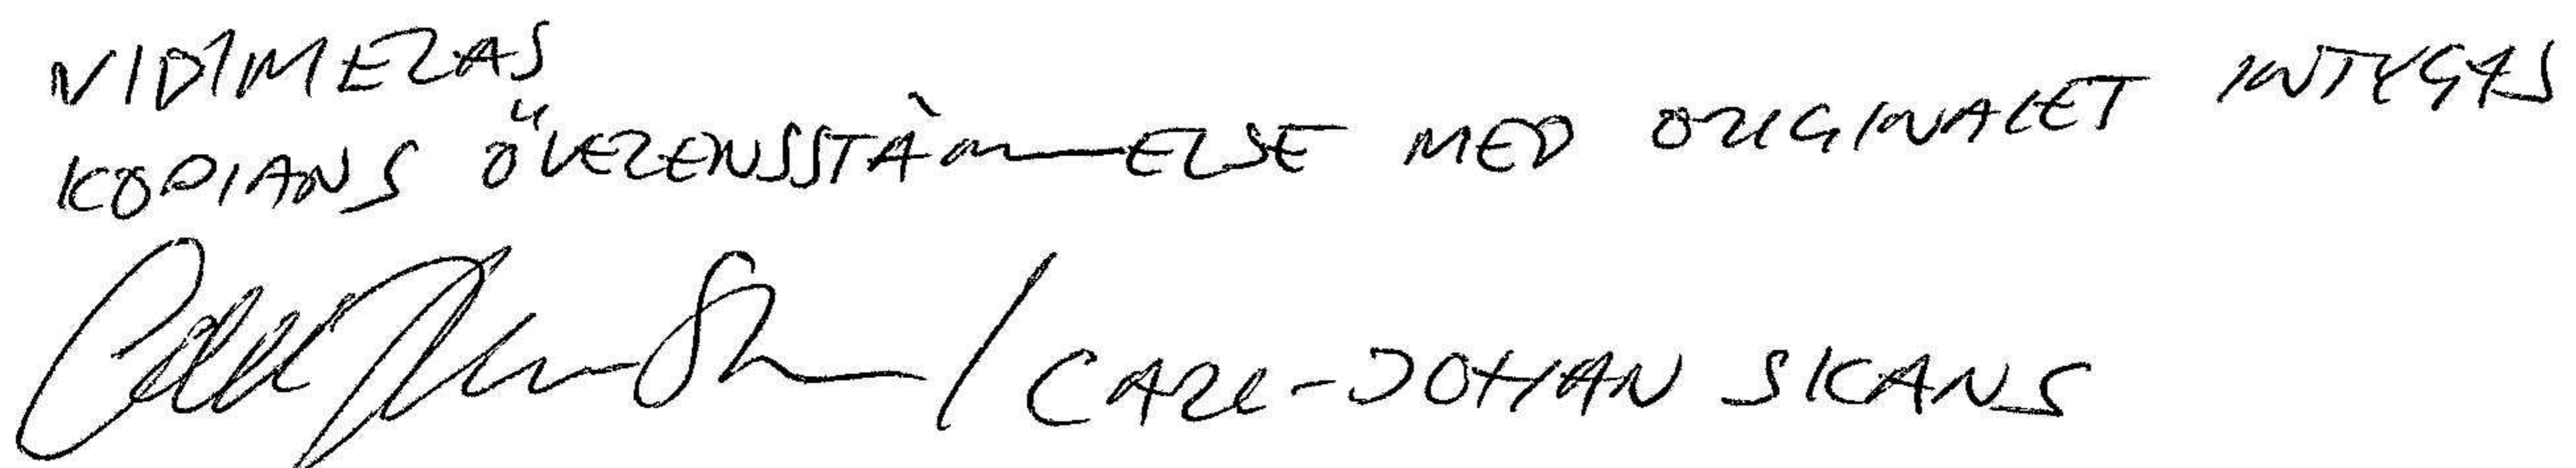 VIDIMERAS
KOPIANS ÖVERENSSTÄMMELSE MED ORIGINALET INTYGAS
/ CARL-JOHAN SKANS